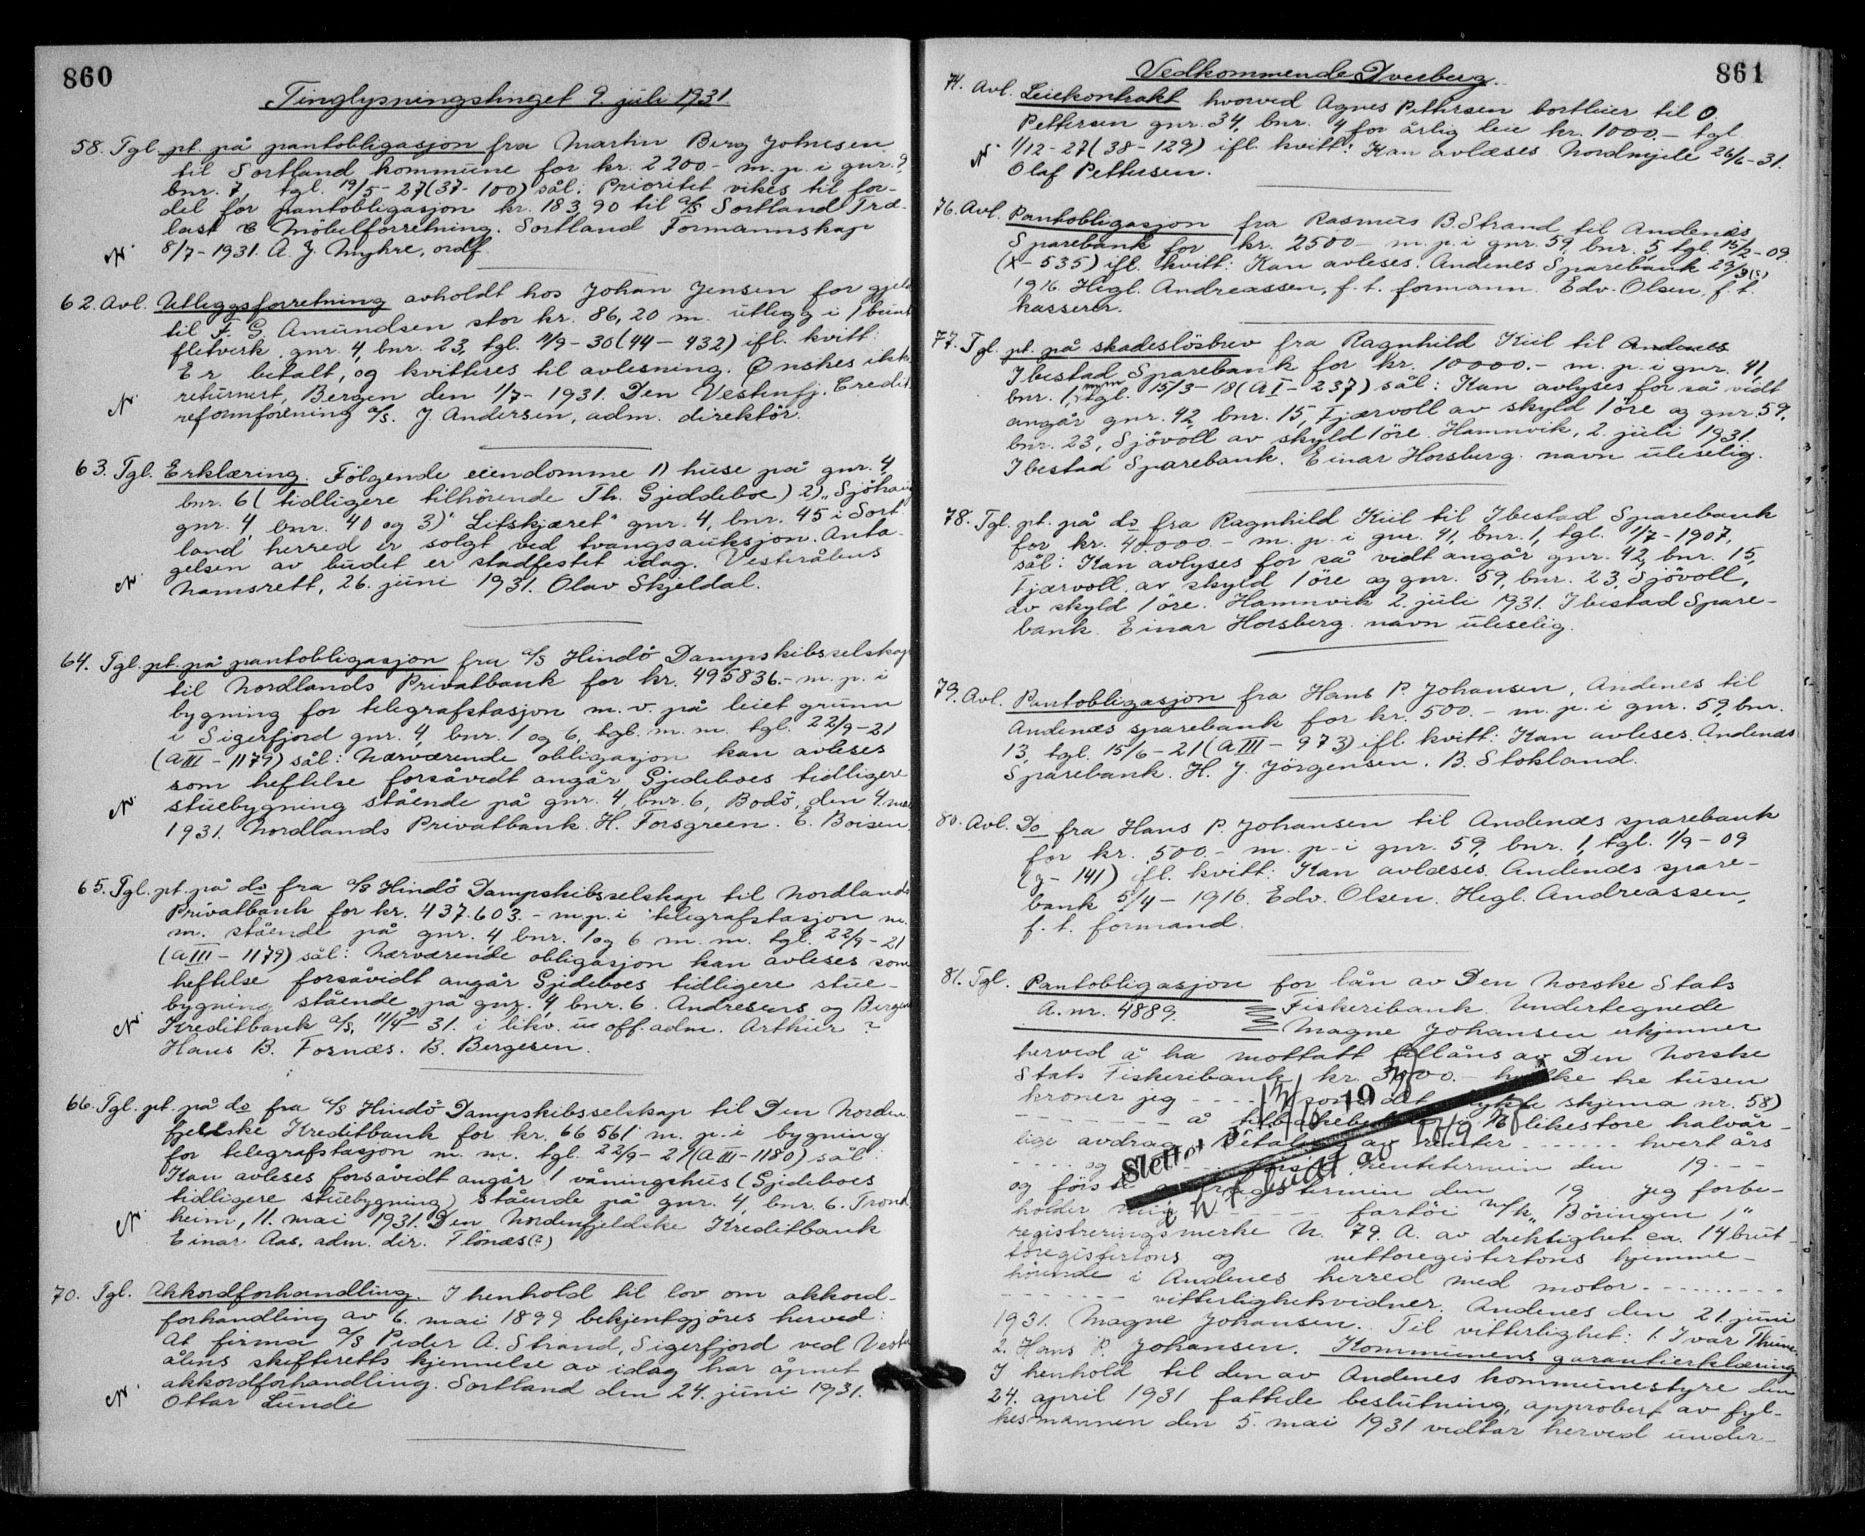 860
Tinglysningstinget 9. juli 1931
58. Tgl. pt. på pantobligasjon fra Martin Berg Johnesen
til Sortland kommune for kr. 2200.- m. p. i gnr. 9,
bnr. 7, tgl. 19/5-27 (37-100) sål: Prioritet vikes til for-
del for pantobligasjon kr. 183,90 til a/s Sortland Træ-
last & Möbelforretning. Sortland Formannskap
8/7-1931. A. J. Myhre, ordf.
62. Avl. Utleggsforretning avholdt hos Johan Jensen for gjeld
til F. G. Amundsen stor kr. 86,20 m. utlegg i 1 bunt
fletverk gnr. 4, bnr. 23, tgl. 11/9-30 (44-432) ifl. kvitt:
Er betalt, og kvitteres til avlesning. Ønskes ikke
returnert, Bergen den 1/7-1931. Den Vestenfj. Credit-
reformforening a/s. J. Andersen, adm. direktör.
63. Tgl. Erklæring. Fölgende eiendomme 1) huse på gnr. 4,
bnr. 6 (tidligere tilhörende Th. Gjeddeboe) 2) "Sjöhaug"
gnr. 4, bnr. 40 og 3) "Litskjæret" gnr. 4, bnr. 45 i Sort-
land herred er solgt ved tvangsauksjon. Anta-
gelsen av budet er stadfestet idag. Vesterålens
Namsrett, 26. juni 1931. Olav Skjeldal.
64. Tgl. pt. på pantobligasjon fra a/s Hindö Dampskibsselskap
til Nordlands Privatbank for kr. 495836.- m. p. i
bygning for telegrafstasjon m. v. på leiet grunn
i Sigerfjord gnr. 4, bnr. 1 og 6, tgl. m. m. tgl. 22/9-21
(A III - 1179) sål: Nærværende obligasjon kan avleses
som heftelse forsåvidt angår Gjedeboes tidligere
stuebygning stående på gnr. 4, bnr. 6, Bodö, den 4. mai
1931. Nordlands Privatbank. H. Forsgreen. E. Boisen.
65. Tgl. pt. på do fra a/s Hindö Dampskibsselskap til Nordlands
Privatbank for kr. 437.603.- m. p. i telegrafstasjon m.
m. stående på gnr. 4, bnr. 1 og 6 m. m. tgl. 22/9-21
(A III - 1179) sål: Nærværende obligasjon kan avleses som
heftelse forsåvidt angår Gjedeboes tidligere stue-
bygning stående på gnr. 4, bnr. 6. Andresens og Bergens
Kreditbank a/s, 11/4-31. i likv. u. off. adm. Arthur ?
Hans B. Fornæs. B. Bergesen.
66. Tgl. pt. på do fra a/s Hindö Dampskibsselskap til Den Norden-
fjeldske Kreditbank for kr. 66561 m. p. i bygning
for telegrafstasjon m. m. tgl. 22/9-21 (A III - 1180) sål:
Kan avleses forsåvidt angår 1 våningshus (Gjedeboes
tidligere stuebygning) stående på gnr. 4, bnr. 6. Trond-
heim, 11. mai 1931. Den Nordenfjeldske Kreditbank
Einar Aas, adm. dir. Flönæs (?)
70. Tgl. Akkordforhandling. I henhold til lov om akkord-
forhandling av 6. mai 1899 bekjentgjöres herved:
At firma a/s Peder A. Strand, Sigerfjord ved Vester-
ålens skifteretts kjennelse av idag har åpnet
akkordforhandling. Sortland den 24. juni 1931.
Ottar Lunde
861
Vedkommende Dverberg.
74. Avl. Leiekontrakt hvorved Agnes Pettersen bortleier til O.
Pettersen gnr. 34, bnr. 4 for årlig leie kr. 1000.- tgl.
1/12-27 (38-129) ifl. kvitt: Kan avlæses Nordmjele 26/6-31.
Olaf Pettersen.
76. Avl. Pantobligasjon fra Rasmus B. Strand til Andenæs
Sparebank for kr. 2500.- m. p. i gnr. 59, bnr. 5, tgl. 15/2-09
(X-535) ifl. kvitt: Kan avleses. Andenes Sparebank 29/3 (?)
1916. Hegl. Andreassen, f. t. formann. Edv. Olsen f. t.
kasserer.
77. Tgl. pt. på skadeslösbrev fra Ragnhild Kiil til Andenes
Ibestad Sparebank for kr. 10000.- m. p. i gnr. 41,
bnr. 1, m. m. tgl. 15/3-18 (A I - 237) sål: Kan avlyses for så vidt
angår gnr. 42, bnr. 15, Fjærvoll av skyld 1 öre og gnr. 59,
bnr. 23, Sjövoll av skyld 1 öre. Hamnvik, 2. juli 1931.
Ibestad Sparebank. Einar Horsberg. navn uleselig.
78. Tgl. pt. på do fra Ragnhild Kiil til Ibestad Sparebank
for kr. 40000.- m. p. i gnr. 41, bnr. 1, tgl. 11/7-1907,
sål: Kan avlyses for så vidt angår gnr. 42, bnr. 15,
Fjærvoll, av skyld 1 öre og gnr. 59, bnr. 23, Sjövoll,
av skyld 1 öre. Hamnvik 2. juli 1931. Ibestad Spare-
bank. Einar Horsberg. navn uleselig.
79. Avl. Pantobligasjon fra Hans P. Johansen, Andenes til
Andenæs sparebank for kr. 500.- m. p. i gnr. 59, bnr.
13, tgl. 15/6-21 (A III - 973) ifl. kvitt: Kan avleses. Andenæs
Sparebank. H. J. Jörgensen. B. Stokland.
80. Avl. Do fra Hans P. Johansen til Andenæs sparebank
for kr. 500.- m. p. i gnr. 59, bnr. 1, tgl. 1/9-09
(z-141) ifl. kvitt: Kan avlæses. Andenæs spare-
bank 5/4-1916. Edv. Olsen. Hegl. Andreassen,
f. t. formand.
81. Tgl. Pantobligasjon for lån av Den Norske Stats
A. nr. 4889. Fiskeribank Undertegnede
Magne Johansen erkjenner
herved å ha mottatt tillåns av Den Norske
Stats Fiskeribank kr. 3000.- hvilke tre tusen
kroner jeg - - - (som det trykte skjema nr. 58)
- - - å tilbakebetale i 16 likestore halvår-
lige avdrag. Betaling av renter - - - hvert års
- - - og rentetermin den 19 - -
og förste avdragstermin den 19 jeg forbe-
holder mig - - - fartöi m/k "Böringen 1"
registreringsmerke N. 79. A. av drektighet ca. 14 brut-
toregistertons og nettoregistertons hjemme-
hörende i Andenes herred med motor - - -
- - - vitterlighetsvidner. Andenes den 21. juni
1931. Magne Johansen. Til vitterlighet: 1. Ivar Thune.
2. Hans P. Johansen. Kommunens garantierklæring
I henhold til den av Andenes kommunestyre den
24. april 1931 fattede beslutning, approbert av fyl-
kesmannen den 5. mai 1931 vedtar herved under-
Slettet
19